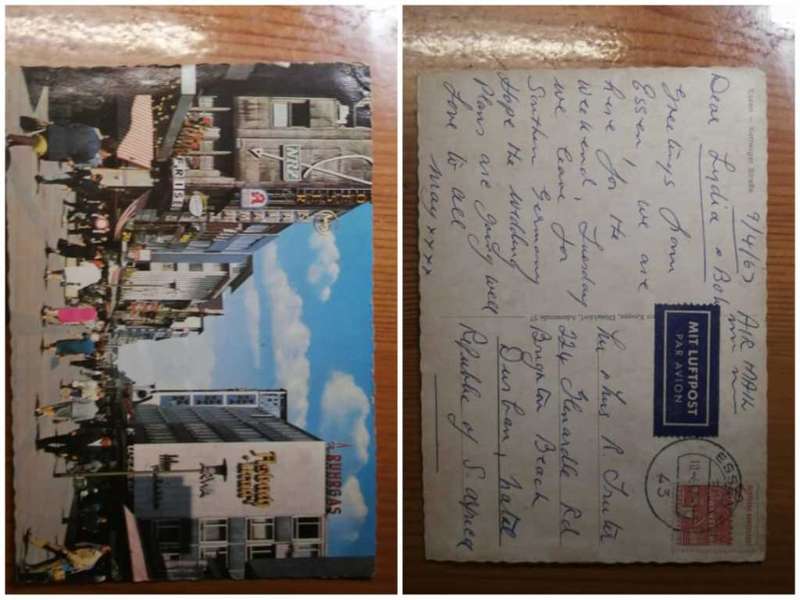 RUHRGAS
Essen — Kettwiger Straße
9/4/67
AIR MAIL
Dear Lydia & Bob
Greetings from
Essen, we are
here for the
weekend, Tuesday
we leave for
Southern Germany
Hope the wedding
Plans are going well
Love to all
May xxxx
MIT LUFTPOST
PAR AVION
ESSEN
43
Mr & Mrs R.
224
Rd
Brighton Beach
Durban, Natal
Republic of S. Africa